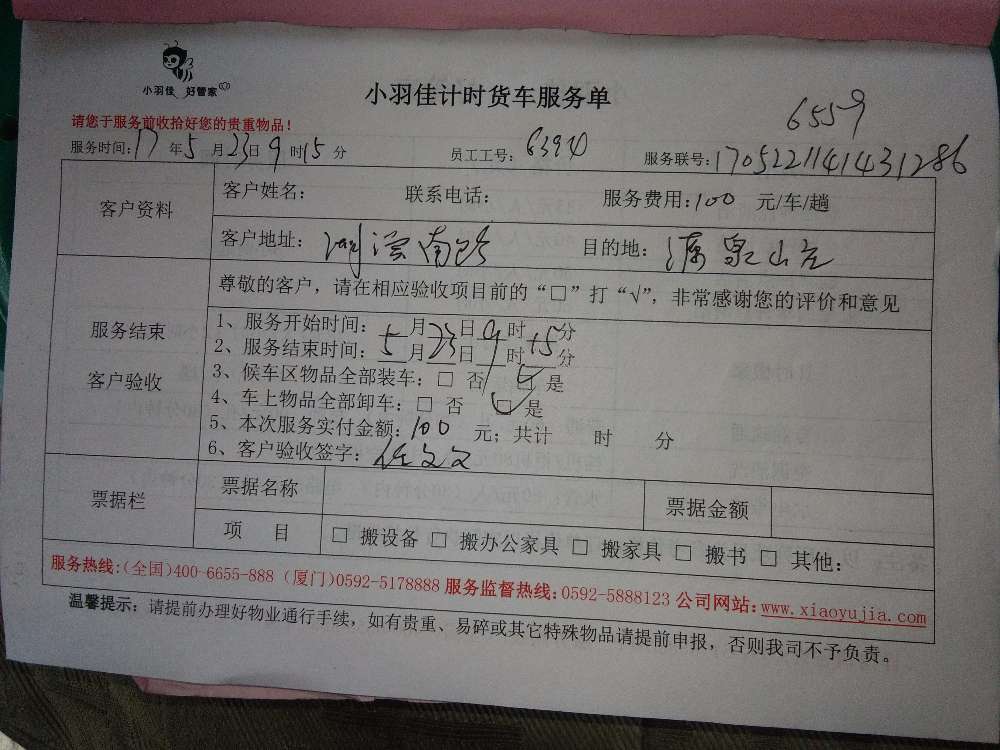 小羽佳 好管家
小羽佳计时货车服务单
6559
请您于服务前收拾好您的贵重物品！
服务时间：17年5月23日9时15分 员工工号： 服务联号：1705221141431286
客户资料
客户姓名： 联系电话： 服务费用：100 元/车/趟
客户地址： 目的地：源泉山庄
服务结束
客户验收
尊敬的客户，请在相应验收项目前的“□”打“√”，非常感谢您的评价和意见
1、服务开始时间：5月23日9时15分
2、服务结束时间：5月23日9时15分
3、候车区物品全部装车：□ 否 □ 是
4、车上物品全部卸车：□ 否 □ 是
5、本次服务实付金额：100 元；共计 时 分
6、客户验收签字：
票据栏
票据名称 票据金额
项 目 □ 搬设备 □ 搬办公家具 □ 搬家具 □ 搬书 □ 其他：
服务热线：(全国)400-6655-888 (厦门)0592-5178888 服务监督热线：0592-5888123 公司网站：www.xiaoyujia.com
温馨提示：请提前办理好物业通行手续，如有贵重、易碎或其它特殊物品请提前申报，否则我司不予负责。